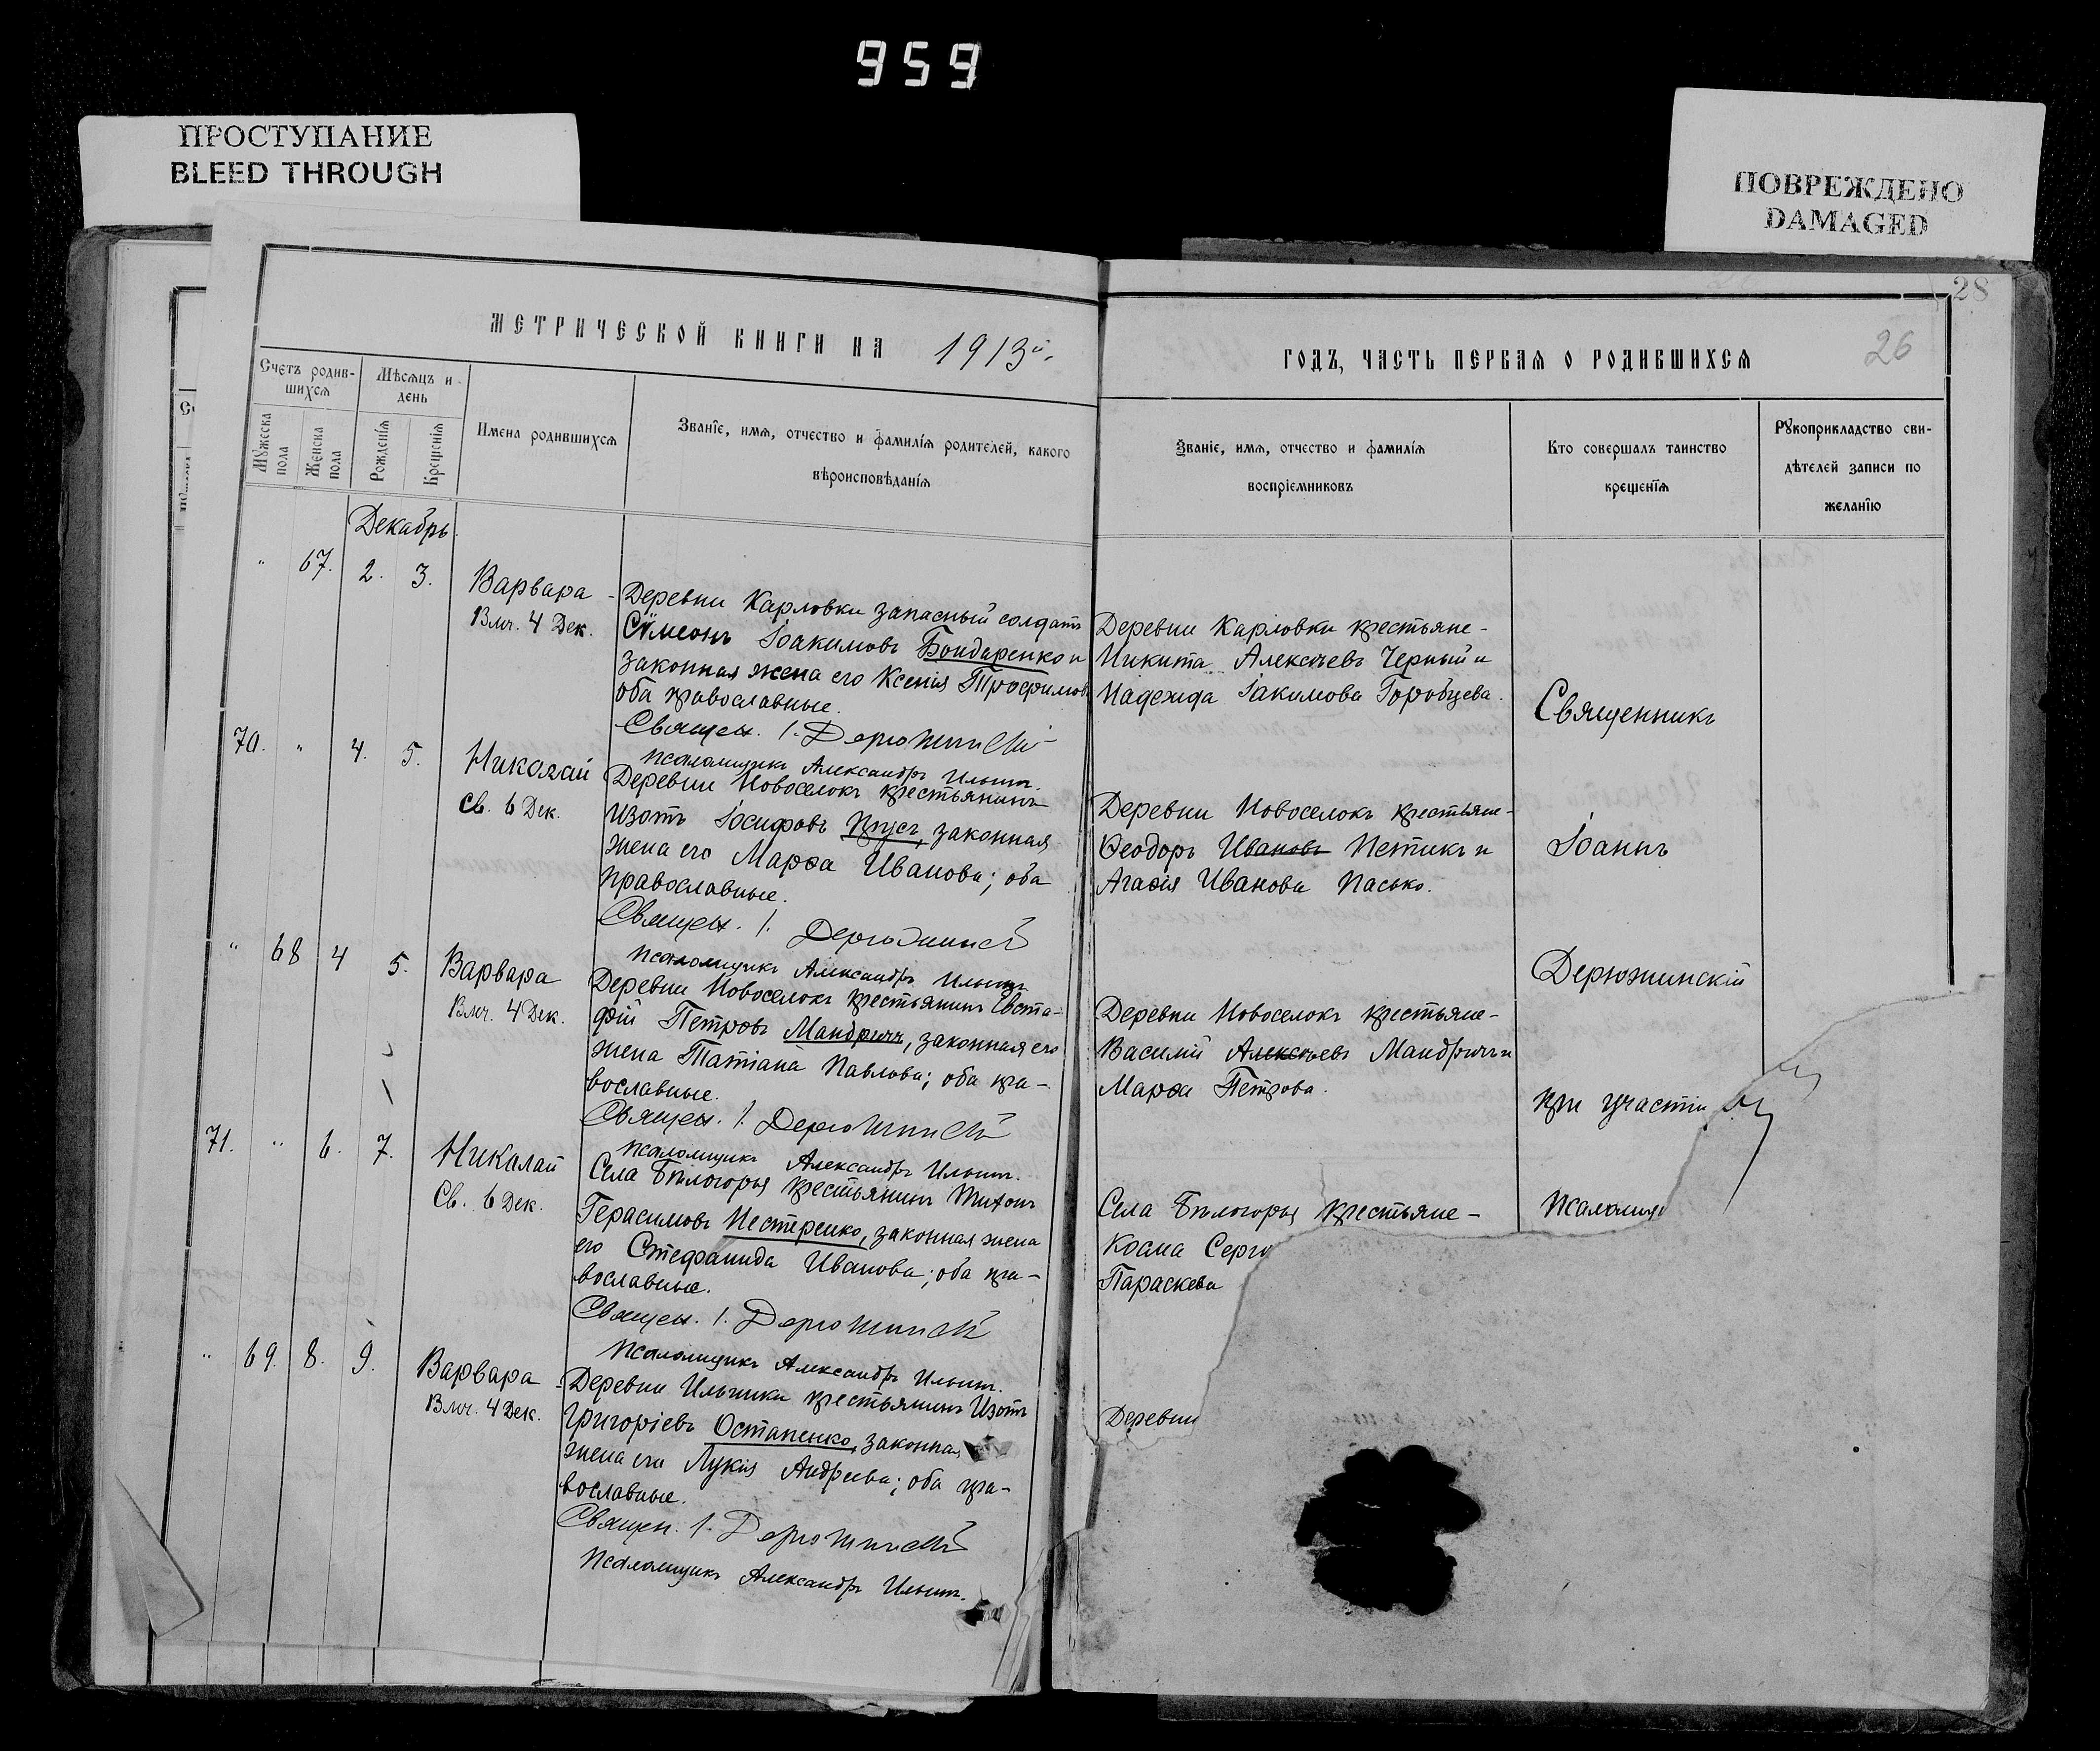 959
ПРОСТУПАНИЕ
BLEED THROUGH
ПОВРЕЖДЕНО
DAMAGED
28
26
МЕТРИЧЕСКОЙ КНИГИ НА 1913й.
ГОДЪ, ЧАСТЬ ПЕРВАЯ О РОДИВШИХСЯ
Счетъ родив-
шихся
Мѣсяцъ и
день
Мужеска
пола
Женска
пола
Рожденія
Крещенія
Имена родившихся
Званіе, имя, отчество и фамилія родителей, какого
вѣроисповѣданія
Званіе, имя, отчество и фамилія
воспріемниковъ
Кто совершалъ таинство
крещенія
Рукоприкладство сви-
дѣтелей записи по
желанію
Декабрь.
" 67. 2. 3.
Варвара
Влмч. 4 Дек.
Деревни Карловки запасный солдатъ
Сѵмеонъ Іоакимовъ Бондаренко и
законная жена его Ксенія Трофимова
оба православные.
Священ. І. Дерюжинскій
Псаломщикъ Александръ Ильит.
Деревни Карловки крестьяне-
Никита Алексѣевъ Черный и
Надежда Іакимова Горобцева.
70. " 4. 5.
Николай
Св. 6 Дек.
Деревни Новоселокъ крестьянинъ
Изотъ Іосифовъ Прусъ, законная
жена его Марѳа Иванова; оба
православные.
Священ. І. Дерюжинскій
Псаломщикъ Александръ Ильит.
Деревни Новоселокъ крестьяне-
Ѳеодоръ Ивановъ Петикъ и
Агаѳія Иванова Пасько.
" 68 4 5.
Варвара
Влмч. 4 Дек.
Деревни Новоселокъ крестьянинъ Евста-
фій Петровъ Мандричъ, законная его
жена Татіана Павлова; оба пра-
вославные.
Священ. І. Дерюжинскій
Псаломщикъ Александръ Ильит.
Деревни Новоселокъ крестьяне-
Василій Алексѣевъ Мандричъ и
Марѳа Петрова.
71. " 6. 7.
Николай
Св. 6 Дек.
Села Бѣлогорья крестьянинъ Титъ
Герасимовъ Нестеренко, законная жена
его Стефанида Иванова; оба пра-
вославные.
Священ. І. Дерюжинскій
Псаломщикъ Александръ Ильит.
Села Бѣлогорья крестьяне-
Косма Серг
Параскева
" 69. 8. 9.
Варвара
Влмч. 4 Дек.
Деревни Ильинки крестьянинъ Изотъ
Григоріевъ Остапенко, законная
жена его Лукія Андреева; оба пра-
вославные.
Священ. І. Дерюжинскій
Псаломщикъ Александръ Ильит.
Деревни
Священникъ
Іоаннъ
Дерюжинскій
при участіи
Псаломщ